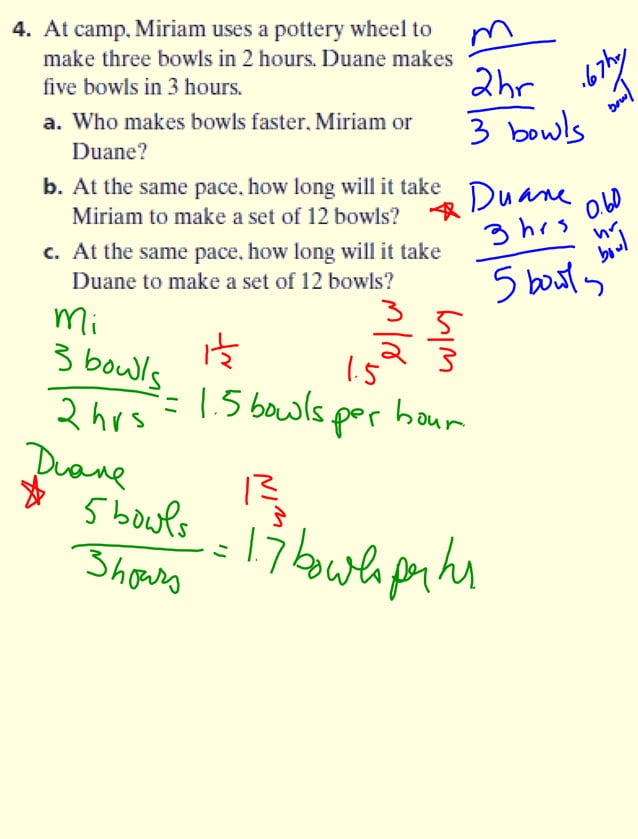 4. At camp, Miriam uses a pottery wheel to
make three bowls in 2 hours. Duane makes
five bowls in 3 hours.
a. Who makes bowls faster, Miriam or
Duane?
b. At the same pace, how long will it take
Miriam to make a set of 12 bowls?
c. At the same pace, how long will it take
Duane to make a set of 12 bowls?
m
2hr
3 bowls
.67hr/
bowl
Duane
3 hrs
5 bowls
0.60
hr/
bowl
Mi
3 bowls
2 hrs
= 1.5 bowls per hour
1 1/2
3/2
1.5
5/3
Duane
5 bowls
3 hours
= 1.7 bowls per hr
1 2/3